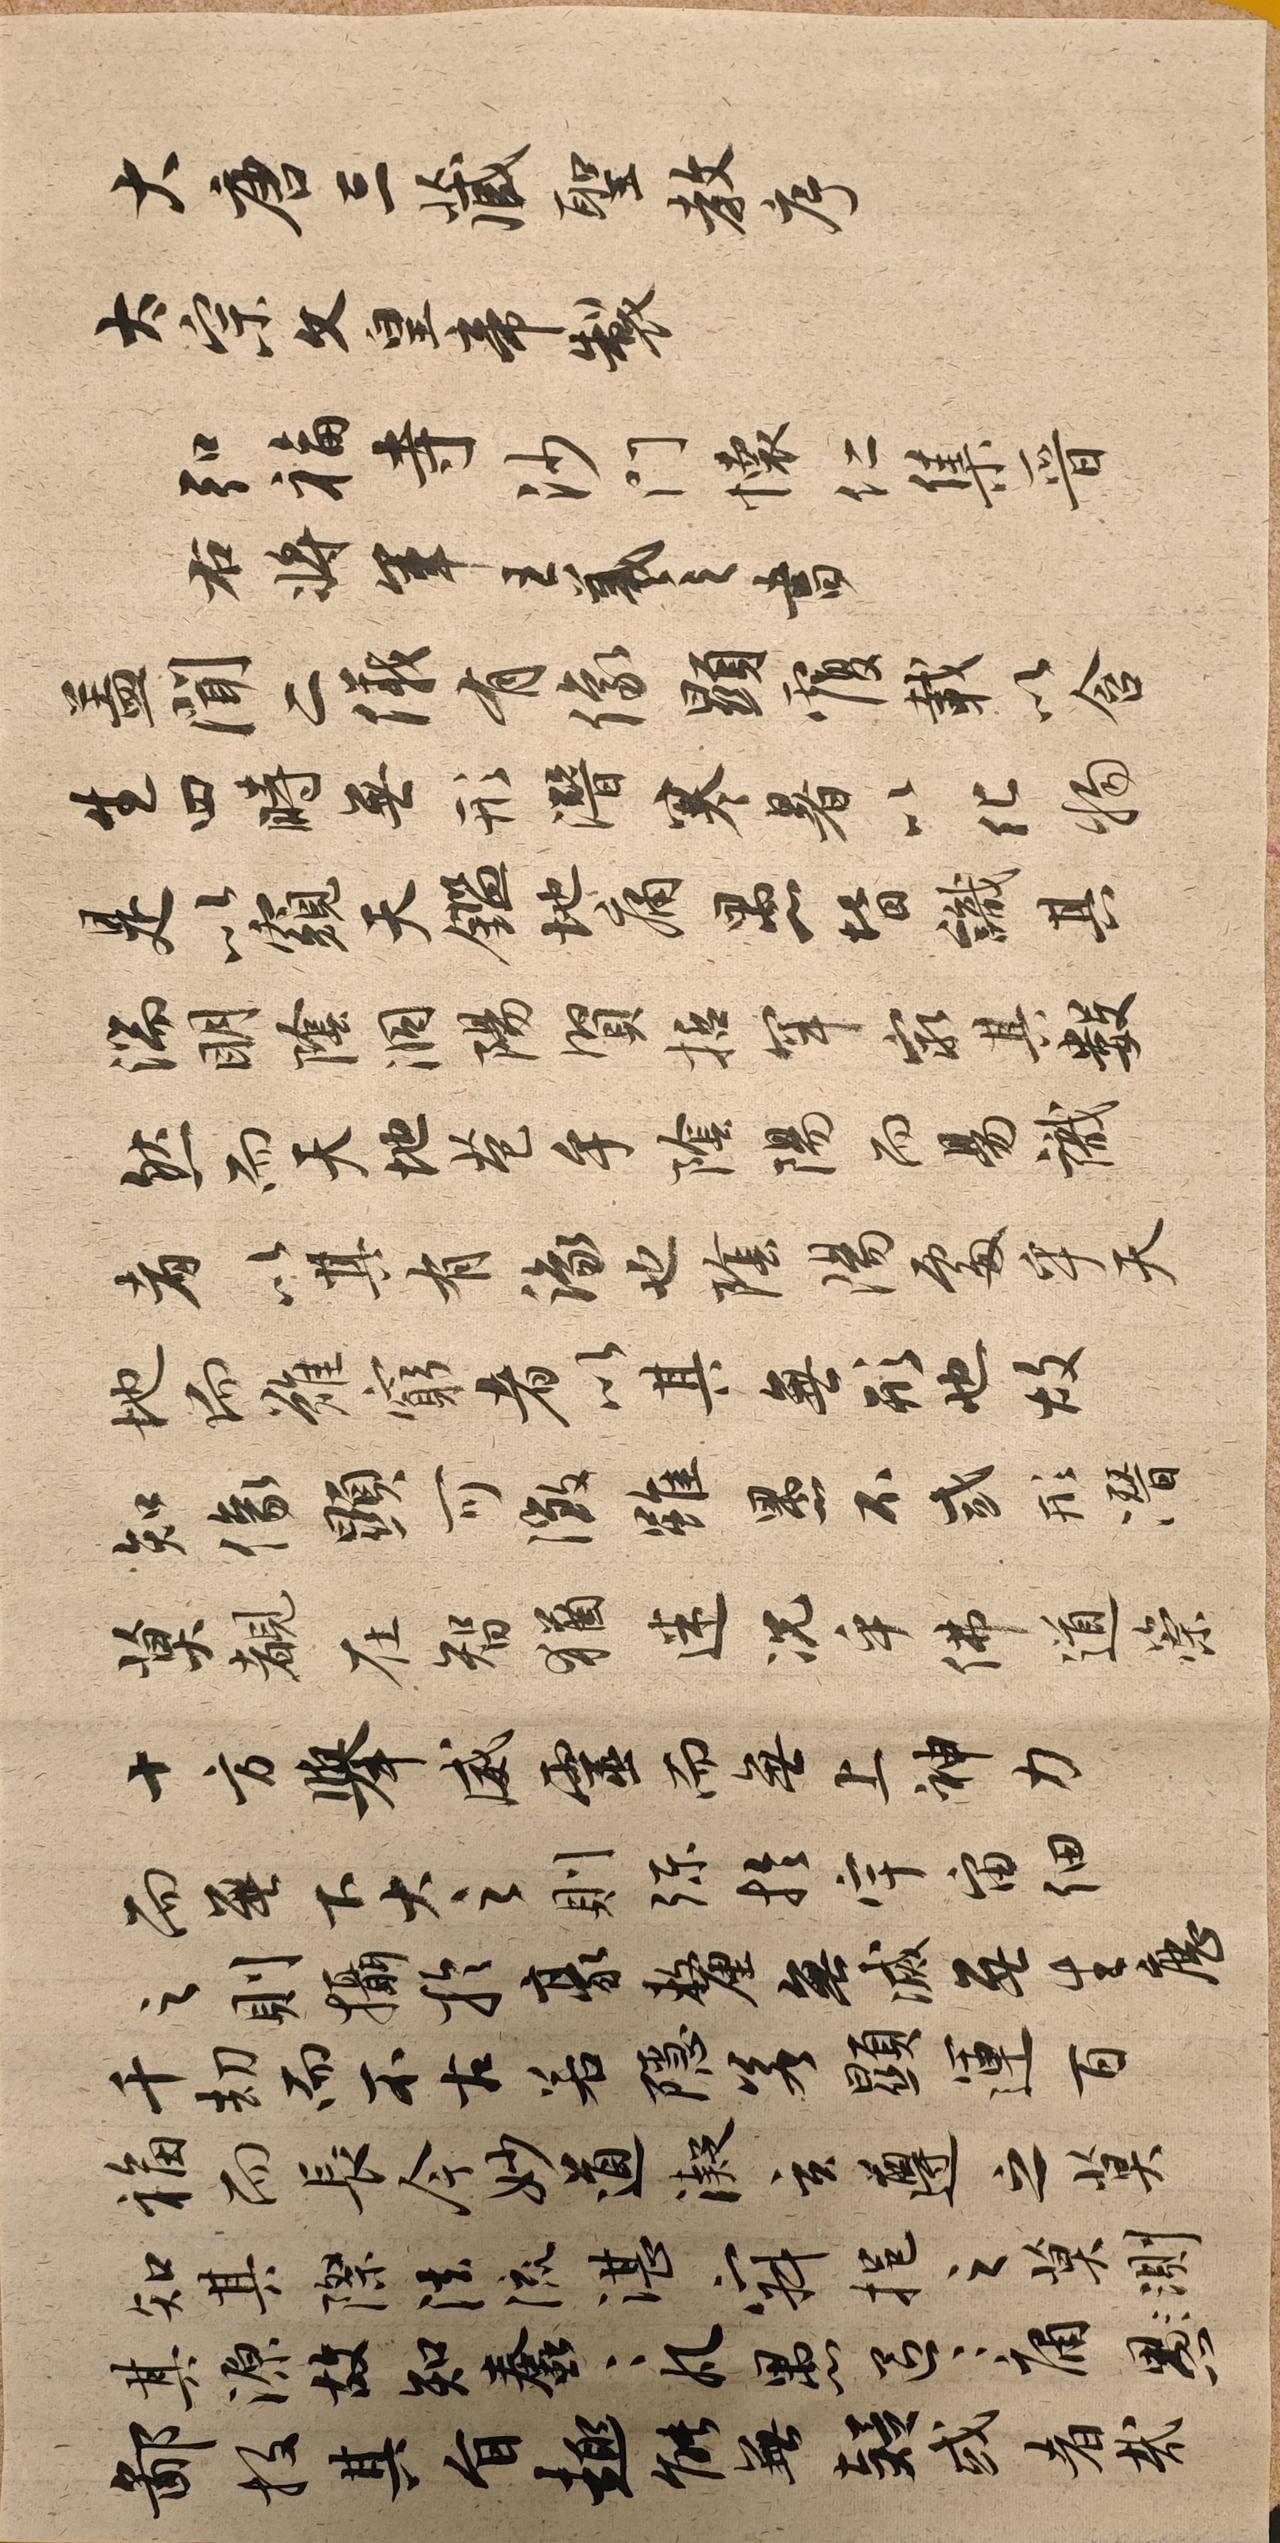 大唐三藏聖教序
太宗文皇帝製
弘福寺沙門懷仁集晉
右將軍王羲之書
蓋聞二儀有像顯覆載以含
生四時無形潛寒暑以化物
是以窺天鑑地庸愚皆識其
端明陰洞陽賢哲罕窮其數
然而天地苞乎陰陽而易識
者以其有像也陰陽處乎天
地而難窮者以其無形也故
知像顯可徵雖愚不惑形潛
莫覩在智猶迷況乎佛道崇
十方舉威靈而無上神力
而無下大之則彌於宇宙細
之則攝於豪釐無滅無生歷
千劫而不古若隱若顯運百
福而長今妙道凝玄遵之莫
知其際法流湛寂挹之莫測
其源故知蠢〻凡愚區〻庸愚
鄙投其旨趣能無疑或者哉